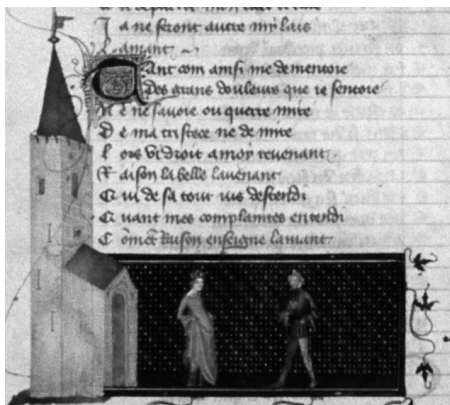 Ja ne feront autre my lais
Lamant
Tant com ainsi me dementoie
Des grans douleurs que ie sentoie
Ne ne savoie ou querre mire
De ma tristece ne de mire
Lors vi droit a moy revenant
Raison la belle lavenant
Qui de sa tour ius descendi
Quant mes complaintes entendi
Coment Raison enseigne lamant